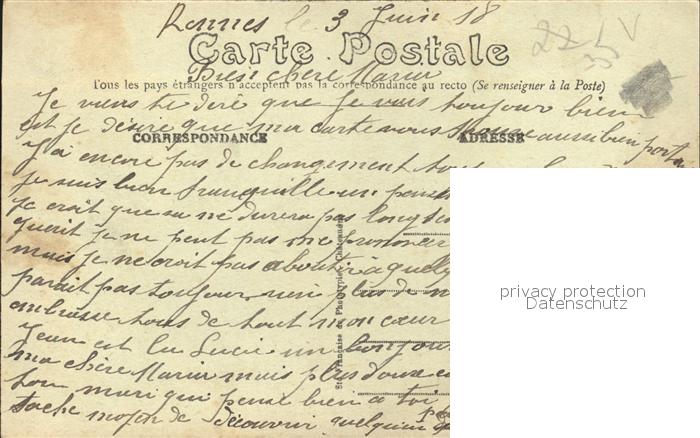 Rennes le 3 Juin 18
Carte Postale
Bien chère Marie
Tous les pays étrangers n'acceptent pas la correspondance au recto (Se renseigner à la Poste)
Je viens te dire que je vais toujour bien
et je désire que ma carte vous trouve aussi bien portan
CORRESPONDANCE
ADRESSE
J'ai encore pas de changement
je suis bien tranquille un
je croit que sa ne durera pas long
guerit je ne peut pas me prononcer
mais je ne croit pas aboutir à quelq
parait pas toujour rien plus de
embrasse tous de tout mon cœur
Jean et la Lucie un bonjour
ma chère Marie mais plus
ton mari qui pense bien à toi
tache moyen de découvrir quelqu'un
Sté Française de Phototypie, Châteaudun
privacy protection
Datenschutz
22
35
V